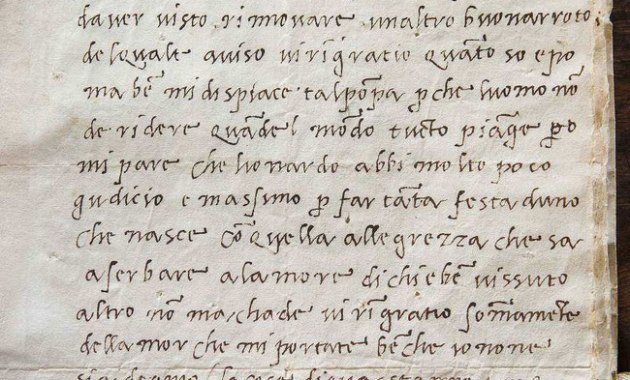 daver visto rinnovare unaltro buonarroto
del quale aviso vi rigratio quāto so e po
ma bē mi dispiace tal pōpa p che luomo nō
de ridere quāde l mōdo tucto piāge po
mi pare che lionardo abbi molto poco
gudicio e massimo p far tāta festa duno
che nasce cō quella allegrezza che sa
a serbare a la morte di chi e bē vissuto
altro nō machade vi rīgratio somāmēte
dellamor che mi portate bē che io no ne